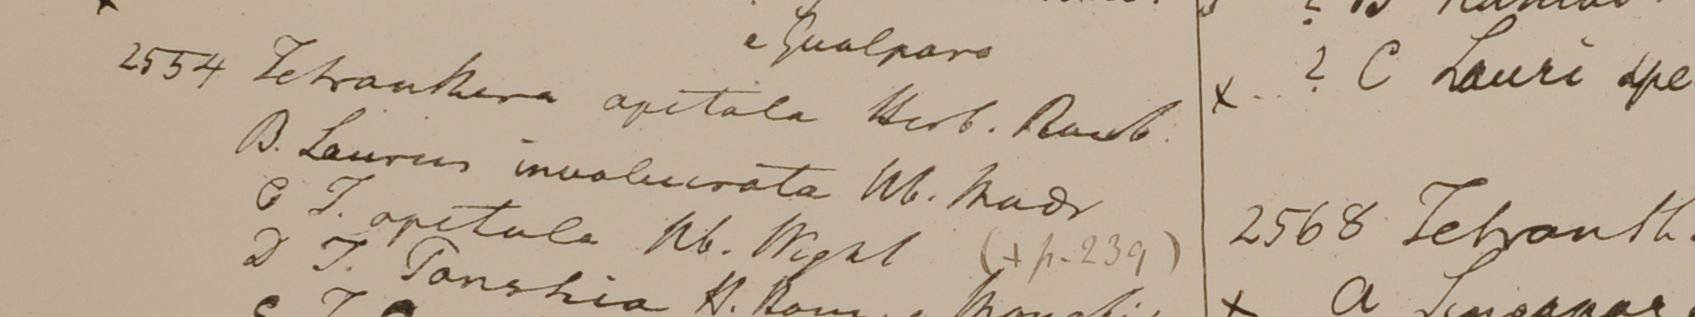 e Gualpara
2554 Tetranthera apetala Herb. Roxb.
B. Laurus involucrata Hb. Madr
C T. apetala Hb. Wight (+ p. 239)
D T. Tonshia H.
? C Lauri spe
x
2568 Tetranth.
x a Singapor